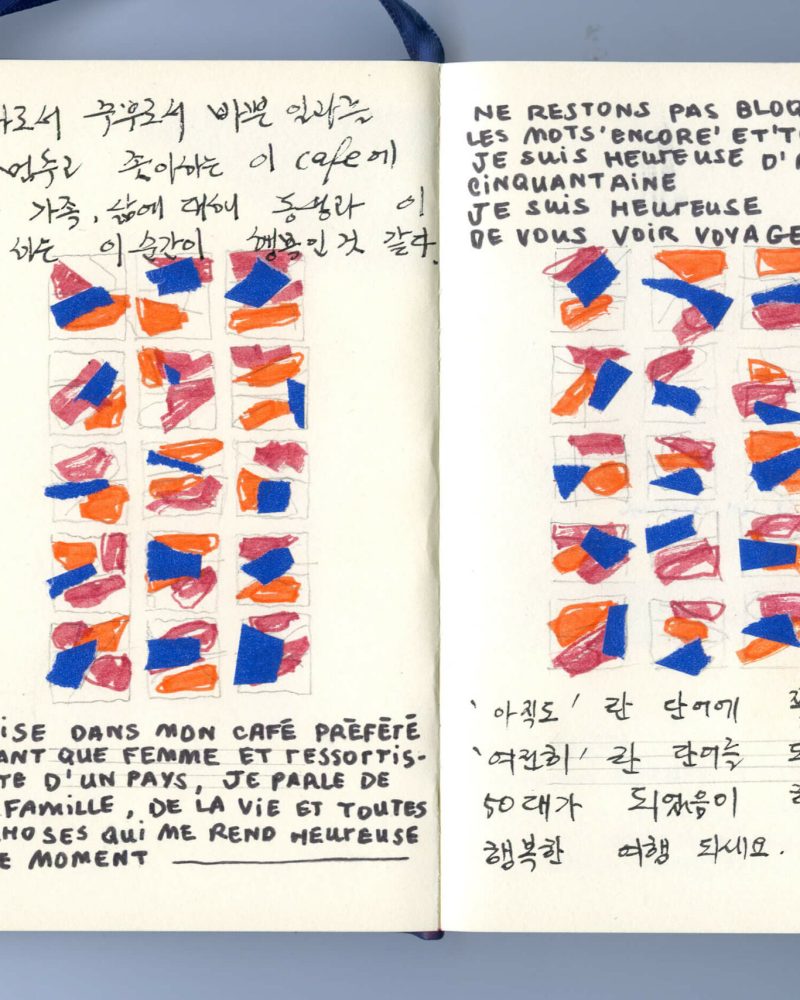 로서 주부로서 바쁜 일과를
멈추고 좋아하는 이 cafe에
가족, 삶에 대해 동생과 이
하는 이 순간이 행복인 것 같다.
ISE DANS MON CAFÉ PRÉFÉRÉ
ANT QUE FEMME ET RESSORTIS-
TE D'UN PAYS, JE PARLE DE
FAMILLE, DE LA VIE ET TOUTES
HOSES QUI ME REND HEUREUSE
E MOMENT
NE RESTONS PAS BLOQ
LES MOTS 'ENCORE' ET 'T
JE SUIS HEUREUSE D'A
CINQUANTAINE
JE SUIS HEUREUSE
DE VOUS VOIR VOYAGE
'아직도' 란 단어에
'여전히' 란 단어를
50대가 되었음이
행복한 여행 되세요.